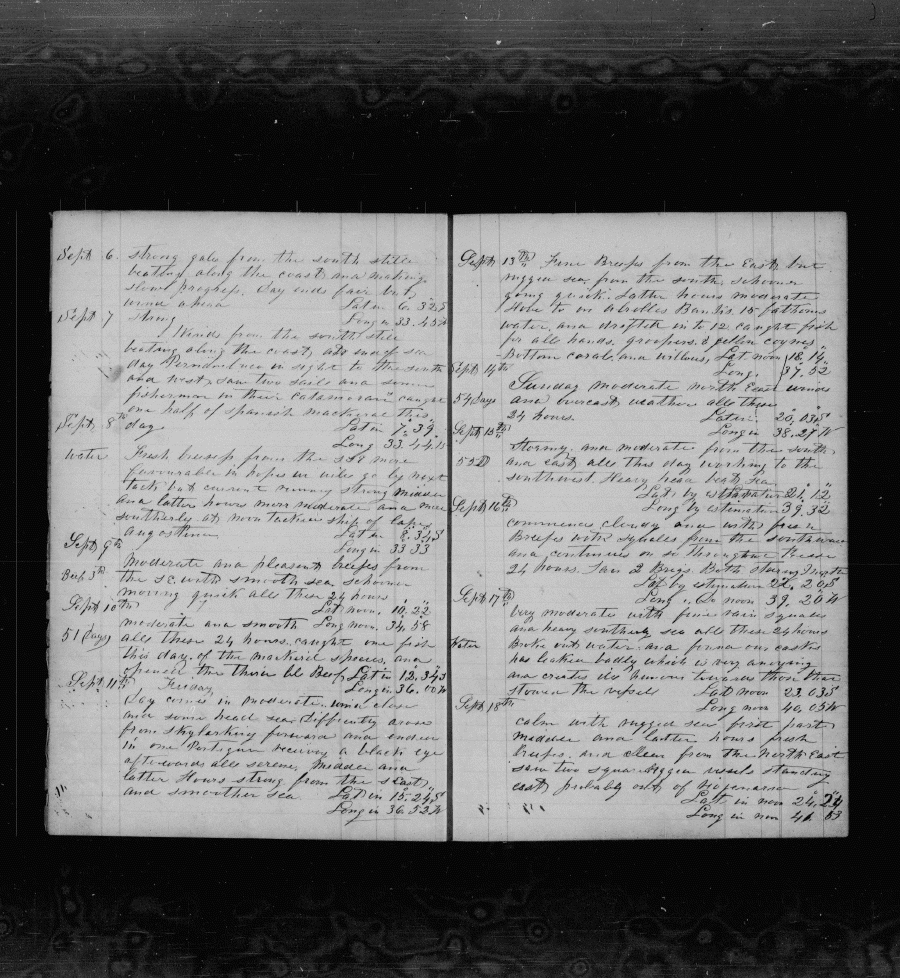 Sept 6. strong gale from the south still
beating along the coast and making
slow progress. Day ends fair but
wind ahead Lat in 6. 32 S
Sept 7 strong Long in 33. 45 W
Winds from the south still
beating along the coast, and sea
day Pernambuco in sight to the south
and west, saw two sails and some
fisherman in their catamoran caught
one half of spanish mackeral this
Sept 8th day. Lat in 7. 39
Long 33. 44
water Fresh breeses from the more
favourable in hopes go by next
tack but current running strong middle
and latter hours more moderate and more
southerly at noon tacked ship of Cape
Augostine Lat in 8. 34 S
Sept 9th Long in 33 33
Moderate and pleasant breeses from
Beef 3rd the S.E. with smooth sea schooner
moving quick all these 24 hours
Sept 10th Lat noon, 10, 22
moderate and smooth Long noon. 34, 58
51 Days all these 24 hours. caught one fish
this day. of the mackeril species. and
opened the third bl Beef Lat in 12, 34 S
Sept 11th Friday Long in 36. 00 W
Day comes in moderate. wind close
and some head sea. Difficulty arose
from skylarking forward and ended
in one Portigue receiveg a black eye
afterwards all serene, Middle and
latter Hours strong from the S East
and smoother sea Lat in 15. 24 S
Long in 36. 53 W
Sept 13th Fine Breeses from the East, but
rugged sea from the south, schooner
going quick. Latter hours moderate
Hove to on Abrolhos Banks. 15 fathoms
water, and drifted in to 12 caught fish
for all hands. groopers. & yellen coynes
Bottom corals, and Lat noon 18. 14
Sept 14th Long. 37. 52
Sunday moderate North East winds
54 Days and overcast weather all these
24 hours. Lat in 20. 03 S
Sept 15th Long in 38. 27 W
Stormy and moderate from the south
55 D and east, all this day working to the
southwest. Heavy head beat sea
Lat, by estimation 21, 12
Sept 16th Long by estimation 39, 32
commences cloudy and with fresh
Breeses with squales from the southward
and continues on so throughout these
24 hours. Saw 2 Brigs. Both staring North
Lat by estimation 22. 20 S
Sept 17th Long, noon 39. 20 W
very moderate with fine rain squales
and heavy southerly sea all these 24 hours
Water Broke out water. and found our caskes
has leaked badly which is very anoying
and creates ill humour towards those that
stowed the vessel Lat noon 23. 03 S
Sept 18th Long noon 40, 05 W
calm with rugged sea first part
middle and latter hours fresh
breeses, and clear from the North East
saw two square Rigged vessels standing
east, probably out of
Lat in noon 24, 24
Long in noon 41 03